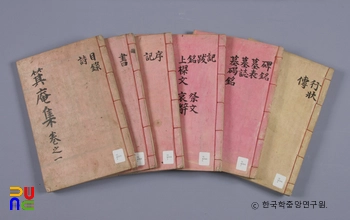 目錄
詩
箕庵集 卷之一
書
序
記
記
跋
銘
上樑文
祭文
哀辭
碑銘
墓表
墓誌
墓碣銘
行狀
傳
ⓒ 한국학중앙연구원